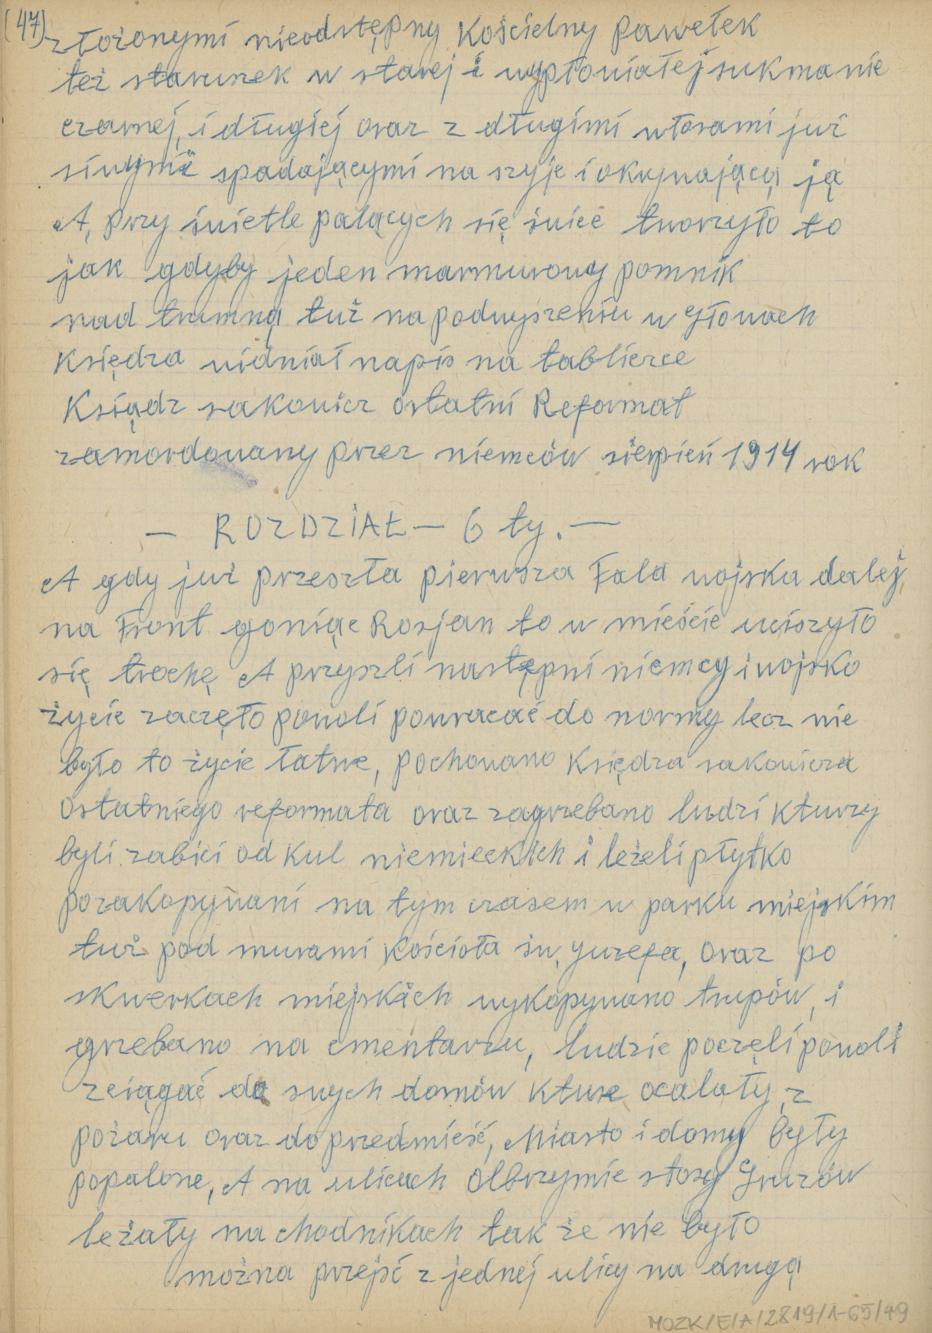 (47)
złożonymi nieodstępny Kościelny pawełek
też staruszek w starej i wypłoniałej sukmanie
czarnej, i długiej oraz z długimi włosami już
siwymi spadającymi na szyje i okrywającą ją
A, przy świetle palących się świec tworzyło to
jak gdyby jeden marmurowy pomnik
nad trumną tuż na podwyszeniu w głowach
Księdza widniał napis na tablicrce
Ksiądz sakowicz ostatni Reformat
zamordowany przez niemców sierpień 1914 rok
— ROZDZIAŁ — 6 ty. —
A gdy już przeszła pierwsza Fala wojska dalej,
na Front goniąc Rosjan to w mieście uciszyło
się trochę A przyszli następni niemcy i wojsko
życie zaczęło powoli powracać do normy lecz nie
było to życie łatwe, pochowano Księdza sakowicza
ostatniego reformata oraz zagrzebano ludzi kturzy
byli zabici od kul niemieckich i leżeli płytko
pozakopywani na tym czasem w parku miejskim
tuż pod murami kościoła św, yuzefa, oraz po
skwerkach miejskich wykopywano trupów, i
grzebano na cmentarzu, ludzie poczęli powoli
zciągać do swych domów kture ocalały, z
pożaru oraz do przedmieść, Miasto i domy były
popalone, A na ulicach olbrzymie stosy Gruzów
leżały na chodnikach tak że nie było
można przejść z jednej ulicy na drugą
MOZK/E/A/2819/1-65/49